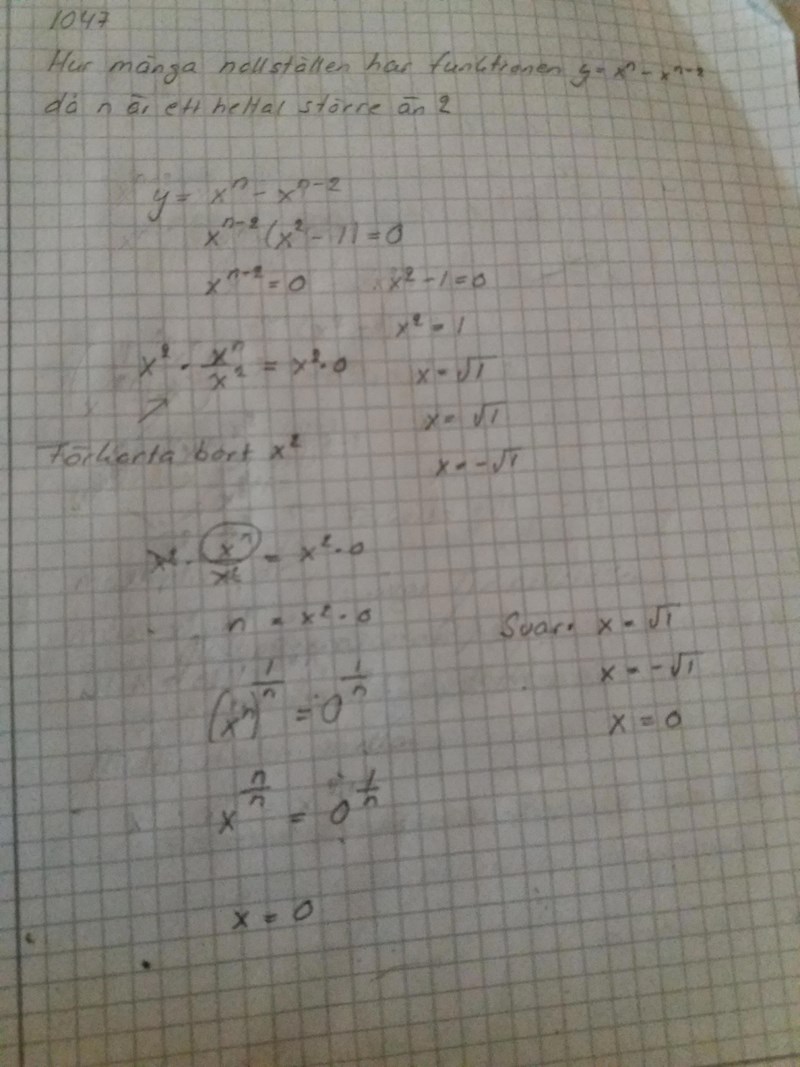 1047
Hur många nollställen har funktionen y = xⁿ - xⁿ⁻²
då n är ett heltal större än 2
y = xⁿ - xⁿ⁻²
xⁿ⁻² (x² - 1) = 0
xⁿ⁻² = 0 x² - 1 = 0
x² = 1
x² · xⁿ/x² = x² · 0 x = √1
x = √1
Förkorta bort x² x = -√1
x² · xⁿ/x² = x² · 0
n = x² · 0 Svar: x = √1
(xⁿ)^(1/n) = 0^(1/n) x = -√1
x = 0
x^(n/n) = 0^(1/n)
x = 0